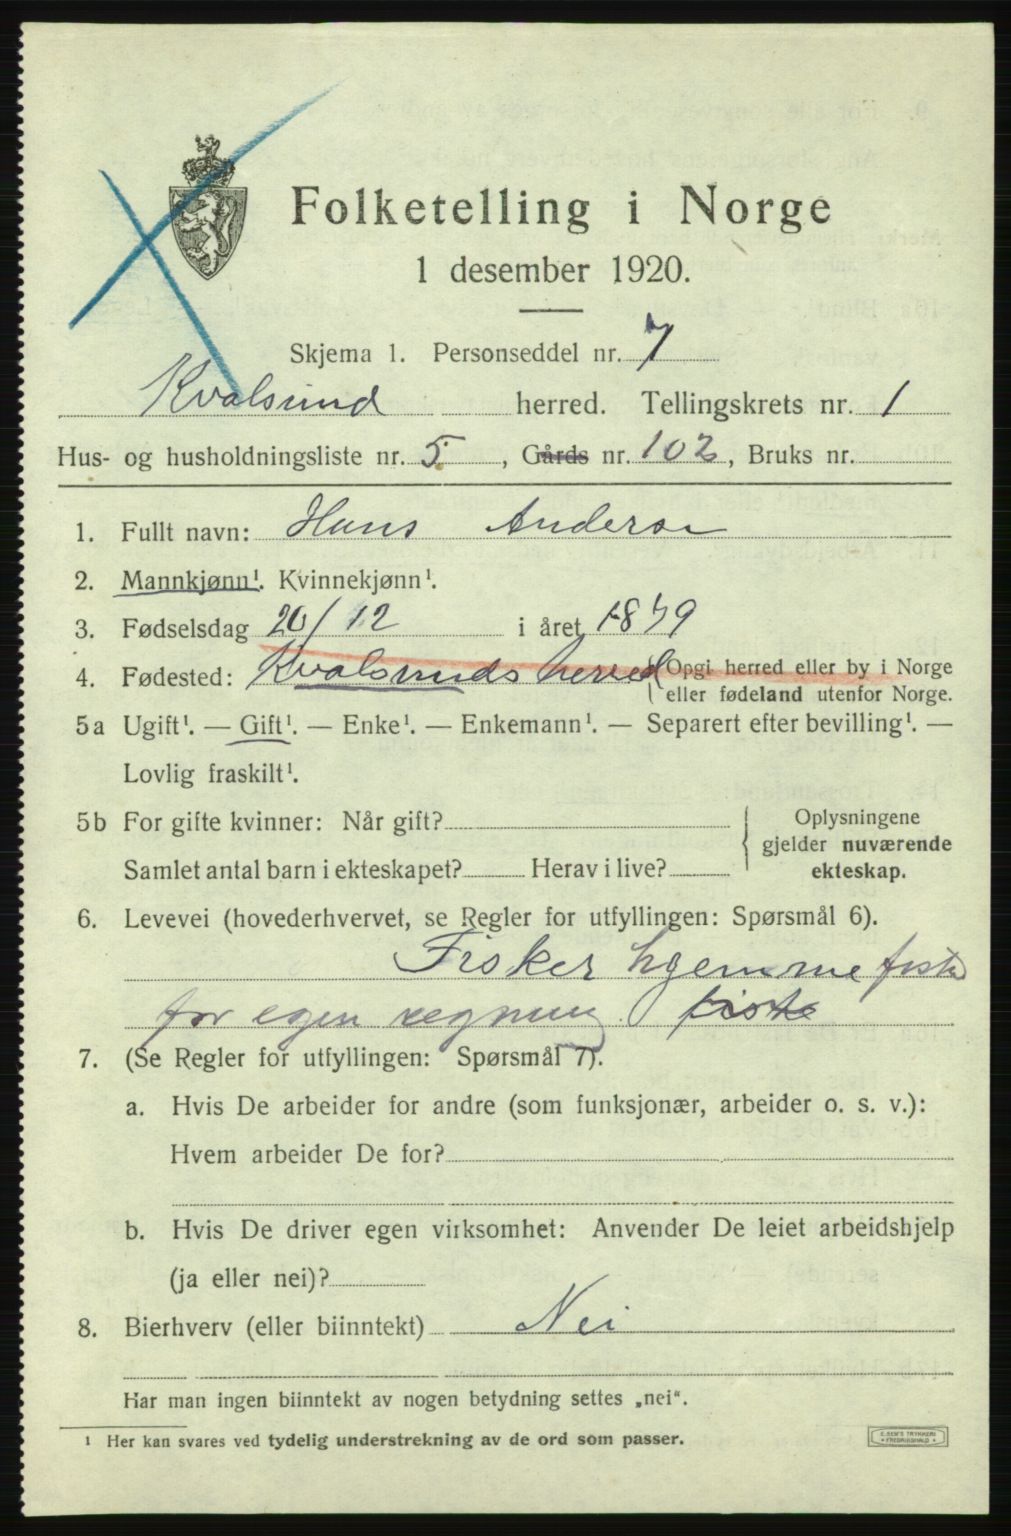 Folketelling i Norge
1 desember 1920.
Skjema 1. Personseddel nr. 7
Kvalsund herred. Tellingskrets nr. 1
Hus- og husholdningsliste nr. 5, Gårds nr. 102, Bruks nr.
1. Fullt navn: Hans Andersen
2. Mannkjønn¹. Kvinnekjønn¹.
3. Fødselsdag 20/12 i året 1879
4. Fødested: Kvalsunds herred (Opgi herred eller by i Norge
eller fødeland utenfor Norge.
5a Ugift¹. — Gift¹. — Enke¹. — Enkemann¹. — Separert efter bevilling¹. —
Lovlig fraskilt¹.
5b For gifte kvinner: Når gift?
Samlet antal barn i ekteskapet? Herav i live?
Oplysningene
gjelder nuværende
ekteskap.
6. Levevei (hovederhvervet, se Regler for utfyllingen: Spørsmål 6).
Fisker hjemme fiske
for egen regning fiske
7. (Se Regler for utfyllingen: Spørsmål 7).
a. Hvis De arbeider for andre (som funksjonær, arbeider o. s. v.):
Hvem arbeider De for?
b. Hvis De driver egen virksomhet: Anvender De leiet arbeidshjelp
(ja eller nei)?
8. Bierhverv (eller biinntekt) Nei
Har man ingen biinntekt av nogen betydning settes „nei“.
¹ Her kan svares ved tydelig understrekning av de ord som passer.